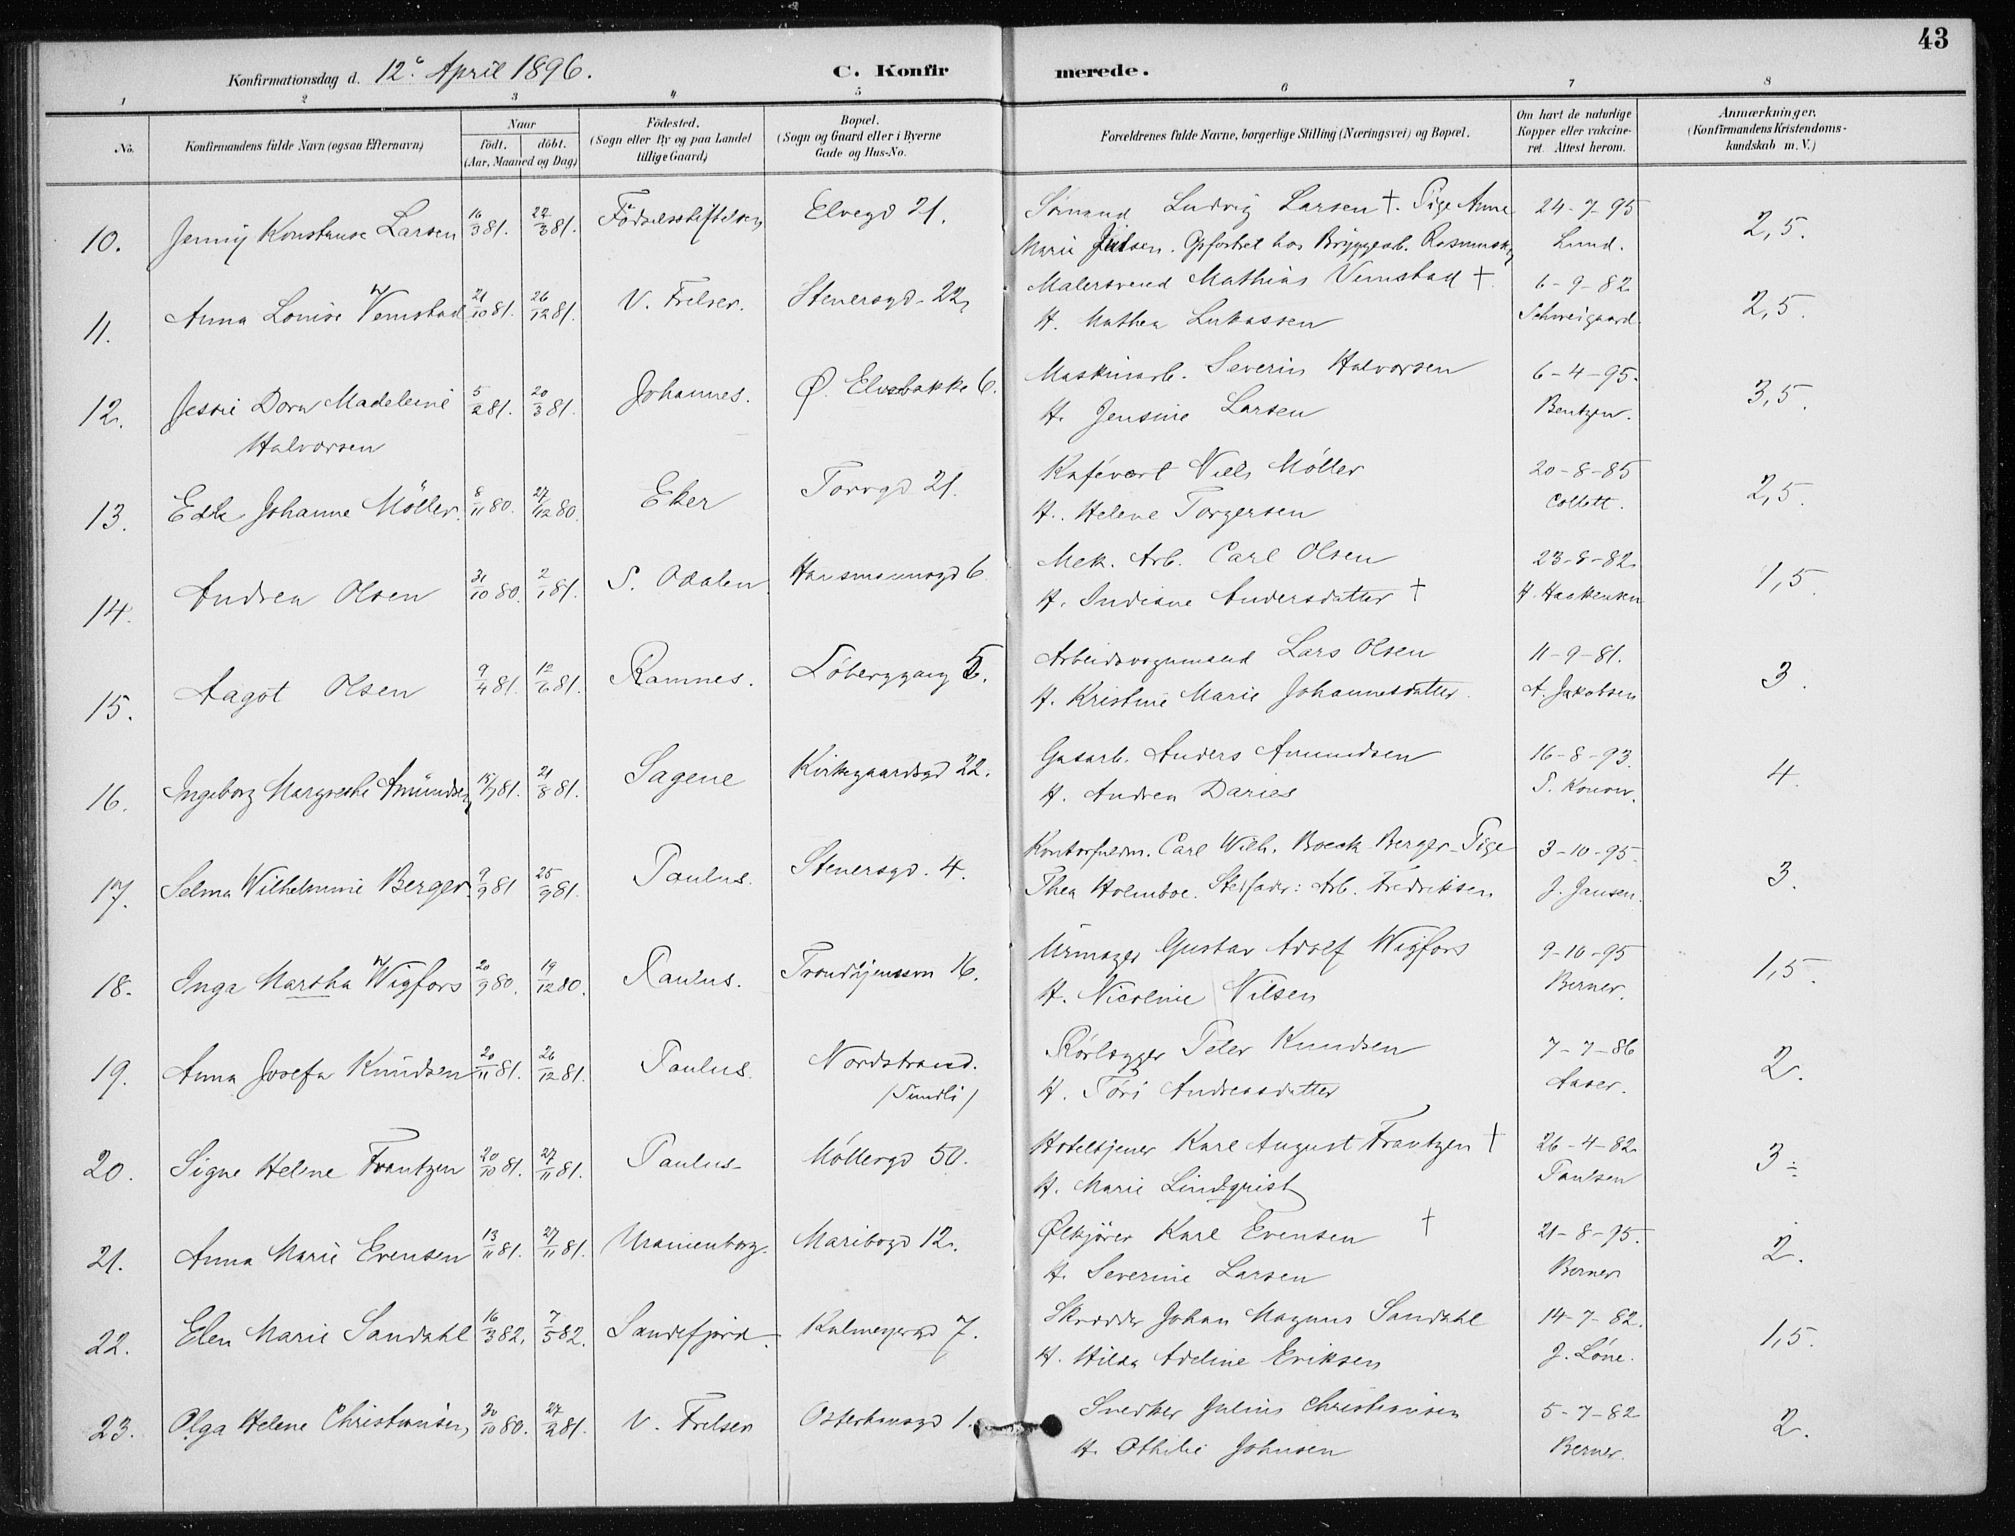 43
Konfirmationsdag d. 12te April 1896. C. Konfirmerede.
1 2 3 4 5 6 7 8
No. Konfirmandens fulde Navn (ogsaa Efternavn) Naar født. døbt. (Aar, Maaned og Dag) Fødested. (Sogn eller By og paa Landet tillige Gaard) Bopæl. (Sogn og Gaard eller i Byerne Gade og Hus-No. Forældrenes fulde Navne, borgerlige Stilling (Næringsvei) og Bopæl. Om havt de naturlige Kopper eller vakcineret. Attest herom. Anmærkninger. (Konfirmandens Kristendomskundskab m. V.)
10. Jenny Konstanse Larsen 16/3 81. 22/3 81. Fødselsstiftelsen Elvegd 21. Sømand Ludvig Larsen †. Pige Anne 24-7-95 2,5.
Marie Julsen. Opfostret hos Bryggearb. Lund.
11. Anna Louise Wemstad 21/10 81. 26/12 81. V. Frelser. Stenersgd. 22. Malersvend Mathias Vemstad †. 6-9-82 2,5.
H. Mathea Lukassen Schweigaard.
12. Jessie Dora Madeleine 5/2 81. 20/3 81. Johannes. Ø. Elvebakke 6. Maskinarb. Severin Halvorsen 6-4-95. 3,5.
Halvorsen H. Jensine Larsen Bentzen.
13. Johanne Möller. 8/11 80. 27/12 80. Eker Torvgd 21. Kafévært Niels Möller 20-8-85 2,5.
H. Helene Torgersen Collett.
14. Andrea Olsen 31/10 80. 2/1 81. S. Odalen Hausmannsgd 6. Mek. Arb. Carl Olsen 23-8-82. 1,5.
H. Indiane Andersdatter † H. Haakensen
15. Aagot Olsen 9/4 81. 12/6 81. Ramnes. Løberggang 5. Arbeidsvognmand Lars Olsen 11-9-81. 3.
H. Kristine Marie Johannesdatter. A. Jakobsen
16. Ingeborg Margrethe Amundsen 15/7 81. 21/8 81. Sagene Kirkegaardsgd 22. Gasarb. Anders Amundsen 16-8-93. 4.
H. Andrea Daries
17. Selma Wilhelmine Berger. 9/9 81 25/9 81. Paulus. Stenersgd. 4. Kontorfuldm. Carl Wilh. Boeck Berger. Pige 3-10-95. 3.
Thea Holmboe. Steffader: Arb. Fredriksen J. Jansen.
18. Inga Martha Wigfors 20/9 80. 19/12 80. Paulus. 16. Urmager Gustav Adolf Wigfors 9-10-95 1,5.
H. Nicoline Nilsen Berner.
19. Anna Josefa Knudsen 20/11 81. 26/12 81. Paulus. Nordstrand. Rørlægger Peter Knudsen 7-7-86 2.
H. Andreasdatter Aaser.
20. Signe Helene Frantzen 20/10 81. 27/11 81. Paulus. Møllergd 50. Hoteltjener Karl August Frantzen † 26-4-82. 3÷
H. Marie Lindqvist Paulsen
21. Anna Marie Evensen 13/11 81. 27/11 81. Uranienborg. Maribogd 12. Ølkjører Karl Evensen † 21-8-95. 2.
H. Severine Larsen Berner
22. Elen Marie Sandahl 16/3 82. 7/5 82. Sandefjord. Kalmeyergd 7. Skrædder Johan Magnus Sandahl 14-7-82. 1,5.
H. Hilda Adeline Eriksen J. Løne.
23. Olga Helene Christiansen 30/10 80. 27/2 81. V. Frelser Osterhausgd 1. Snedker Julius Christiansen 5-7-82 2.
H. Othilie Johnsen Berner.